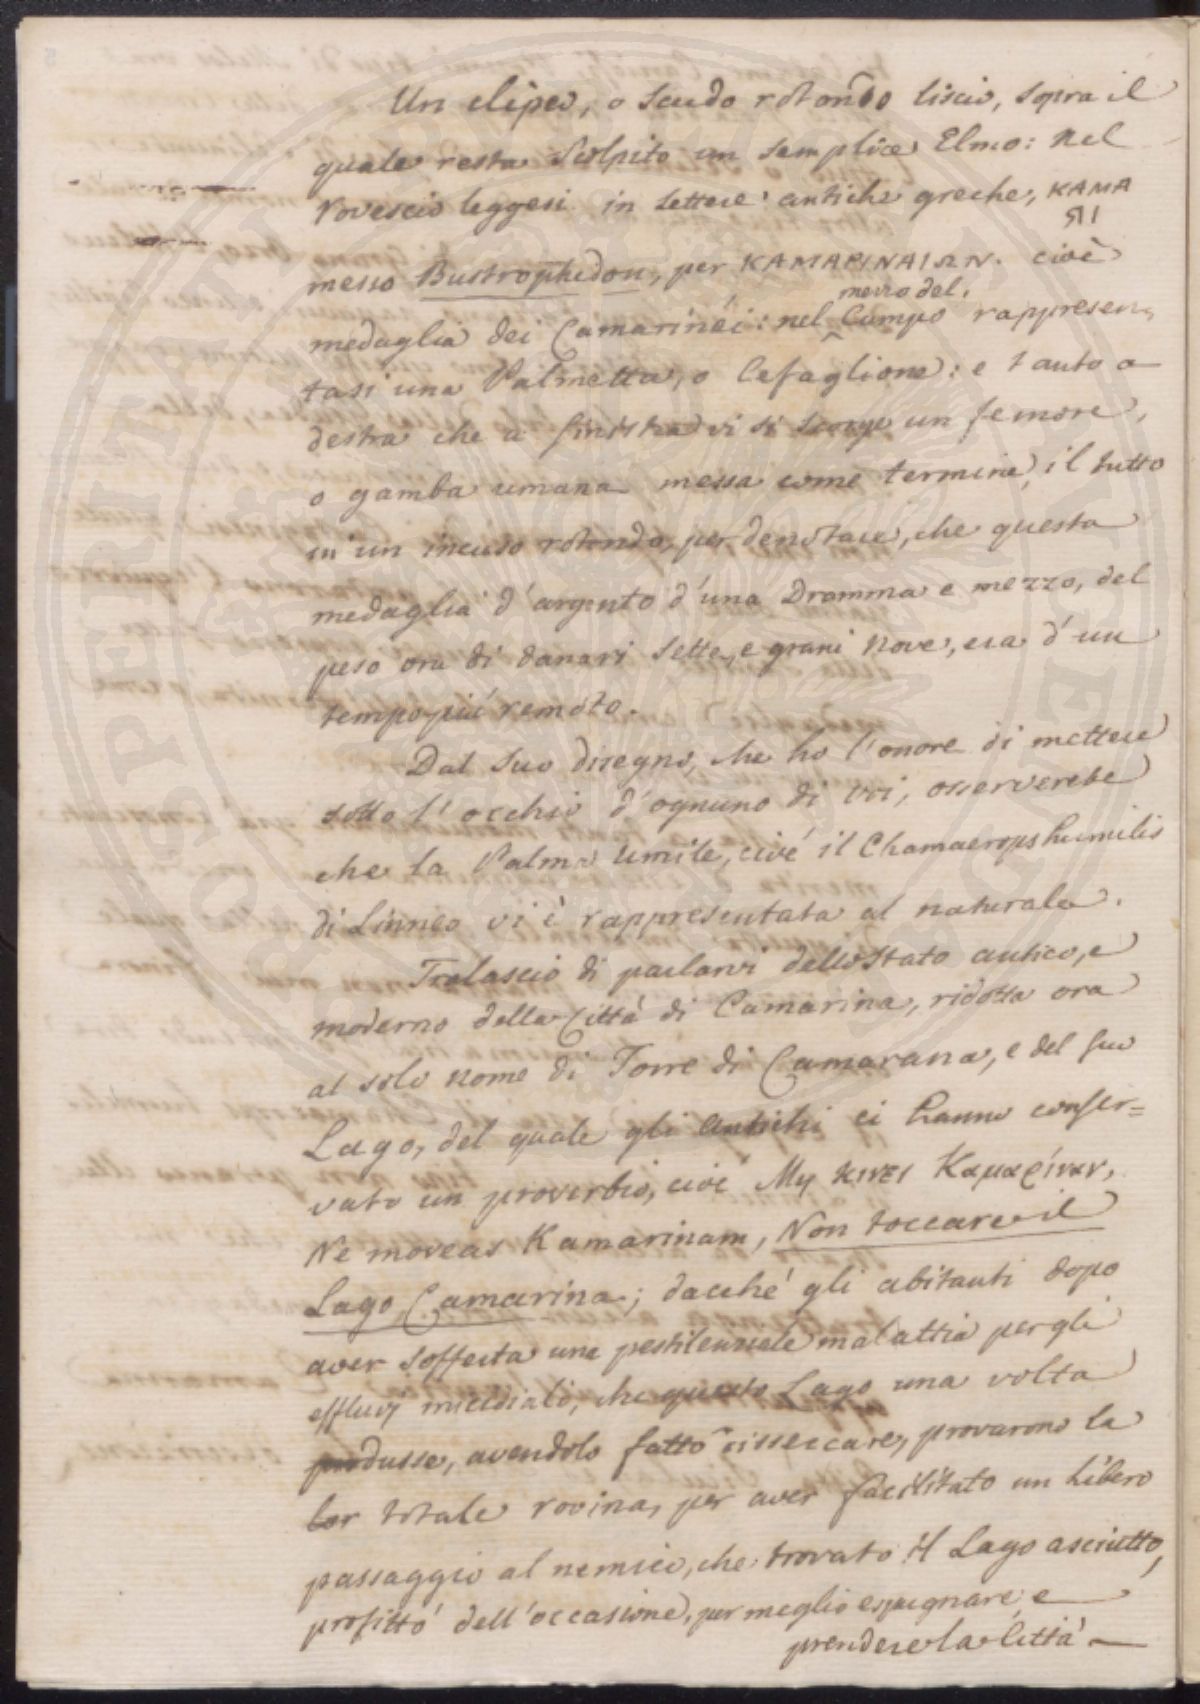 Un clipeo, o scudo rotondo liscio, sopra il
quale resta scolpito un semplice Elmo: nel
rovescio leggesi in lettere antiche greche, ΚΑΜΑ
ЯΙ
messo Bustrophedon, per ΚΑΜΑΡΙΝΑΙΩΝ. cioè
mezzo del.
medaglia dei Camarinéi: nel Campo rappresen,
tasi una Palmetta, o Cefaglione: e tanto a
destra che a sinistra vi si scorge un femore,
o gamba umana messa come termine, il tutto
in un incuso rotondo, per denotare, che questa
medaglia d'argento d'una Dramma e mezzo, del
peso ora di danari sette, e grani nove, era d'un
tempo più remoto.
Dal suo disegno, che ho l'onore di mettere
sotto l'occhio d'ognuno di voi, osserverete
che la Palma umile, cioé il Chamaerops humilis
di Linneo vi è rappresentata al naturale.
Tralascio di parlarvi dello Stato antico, e
moderno della Città di Camarina, ridotta ora
al solo nome di Torre di Camarana, e del suo
Lago, del quale gli antichi ci hanno conser=
vato un proverbio, cioè Μη κινει Καμαρίναν,
Ne moveas Kamarinam, Non toccare il
Lago Camarina; dacché gli abitanti dopo
aver sofferta una pestilenziale malattia per gli
effluvj micidiali, che questo Lago una volta
produsse, avendolo fatto disseccare, provarono la
lor totale rovina, per aver facilitato un libero
passaggio al nemico, che trovato il Lago asciutto,
profittó dell'occasione, per meglio espugnare e
prendere la Città